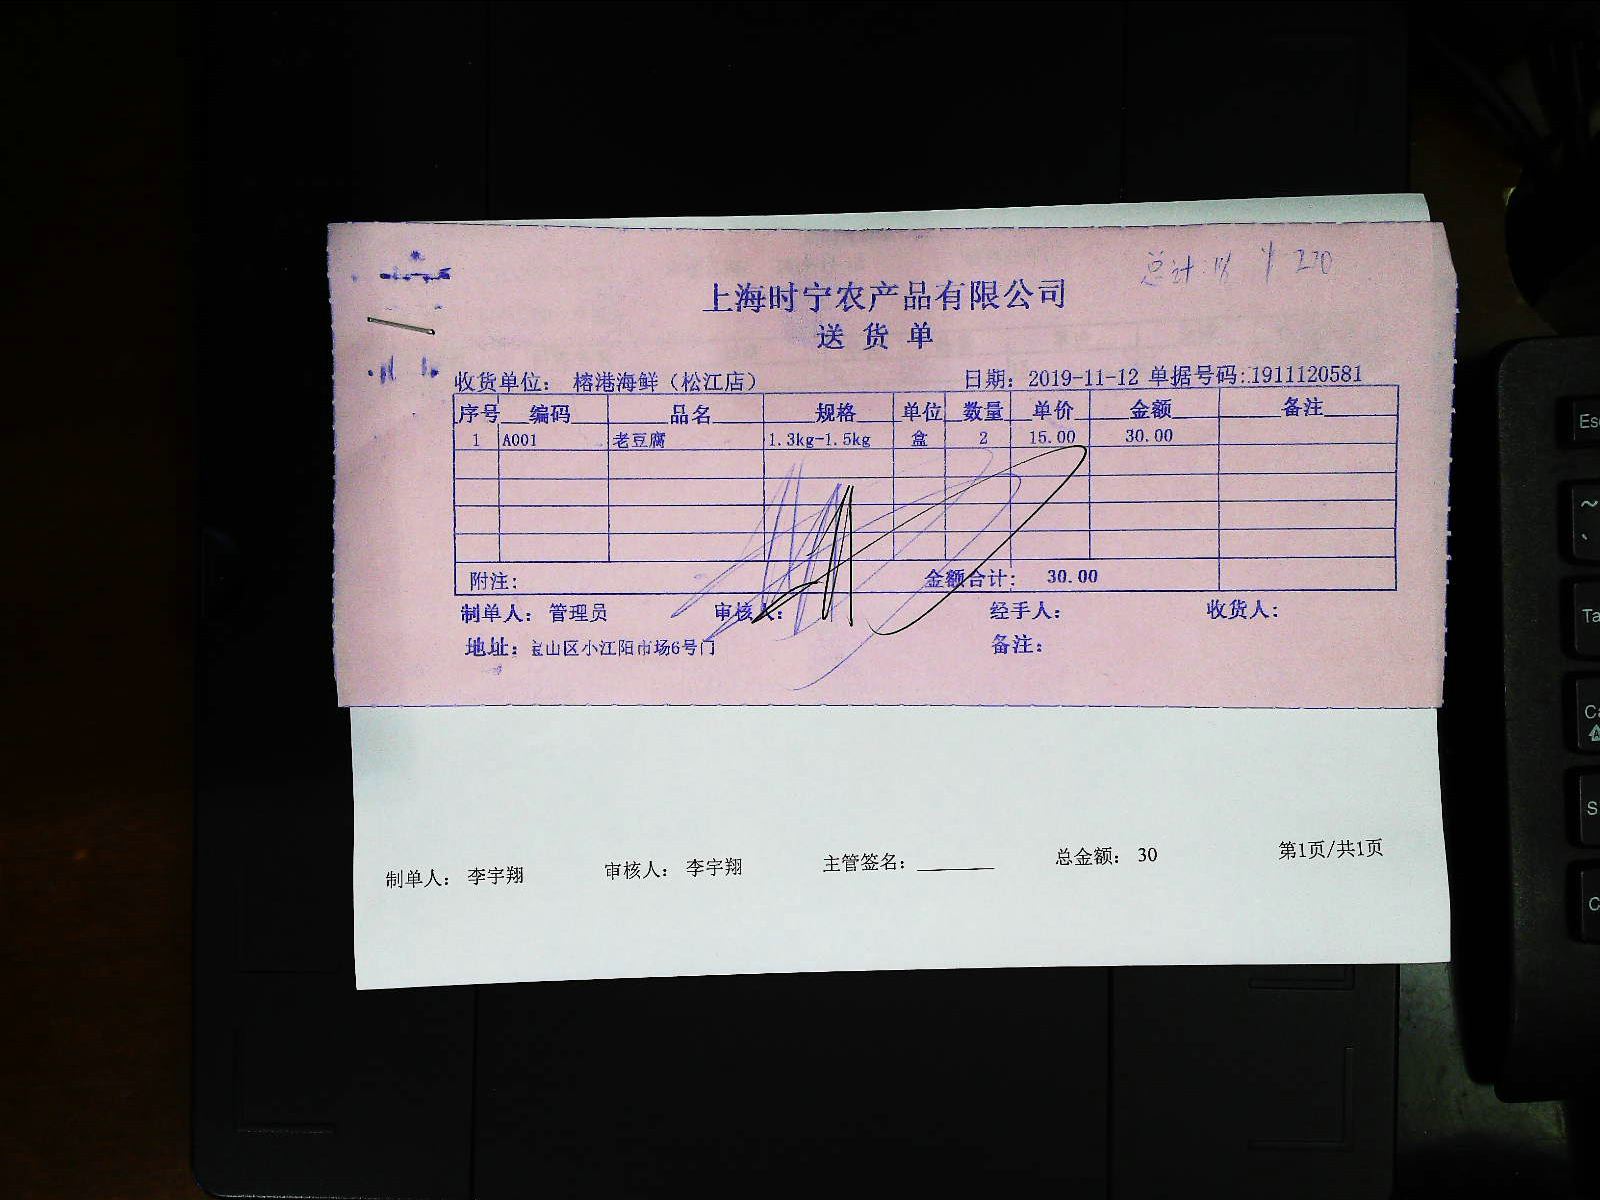 总计: ¥ 270
上海时宁农产品有限公司
送 货 单
收货单位: 榕港海鲜（松江店） 日期: 2019-11-12 单据号码:1911120581
序号 编码 品名 规格 单位 数量 单价 金额 备注
1 A001 老豆腐 1.3kg-1.5kg 盒 2 15.00 30.00
附注: 金额合计: 30.00
制单人: 管理员 审核人: 经手人: 收货人:
地址: 宝山区小江阳市场6号门 备注:
制单人: 李宇翔 审核人: 李宇翔 主管签名: ________ 总金额: 30 第1页/共1页